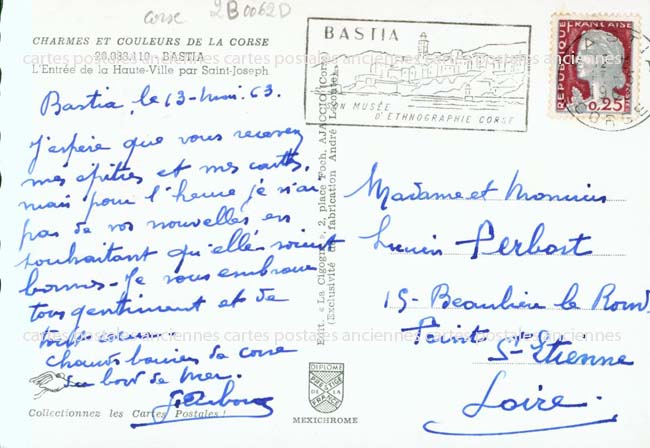 Corse 2B0062D
CHARMES ET COULEURS DE LA CORSE
20.033.110 - BASTIA
L'Entrée de la Haute-Ville par Saint-Joseph
Bastia, le 13-mai. 63.
J'espère que vous recevez
mes épîtres et mes cartes,
mais pour l'heure je n'ai
pas de vos nouvelles en
souhaitant qu'elles soient
bonnes - Je vous embrasse
tous gentiment et de
tout cœur.
chauds baisers de corse
au bord de mer.
Collectionnez les Cartes Postales !
Edit. « La Cigogne », 2, place Foch, AJACCIO (Corse)
(Exclusivité de fabrication André Leconte)
BASTIA
SON MUSÉE
D'ETHNOGRAPHIE CORSE
REPUBLIQUE FRANÇAISE
0,25
CORSE
Madame et Monsieur
Lucien Ferbost
15 - Beaulieu le Rond
Point
St-Etienne
Loire.
DIPLOME
PRESTIGE
DE LA
FRANCE
MEXICHROME
cartes postales anciennes cartes postales anciennes cartes postales anciennes
cartes postales anciennes cartes postales anciennes cartes postales anciennes